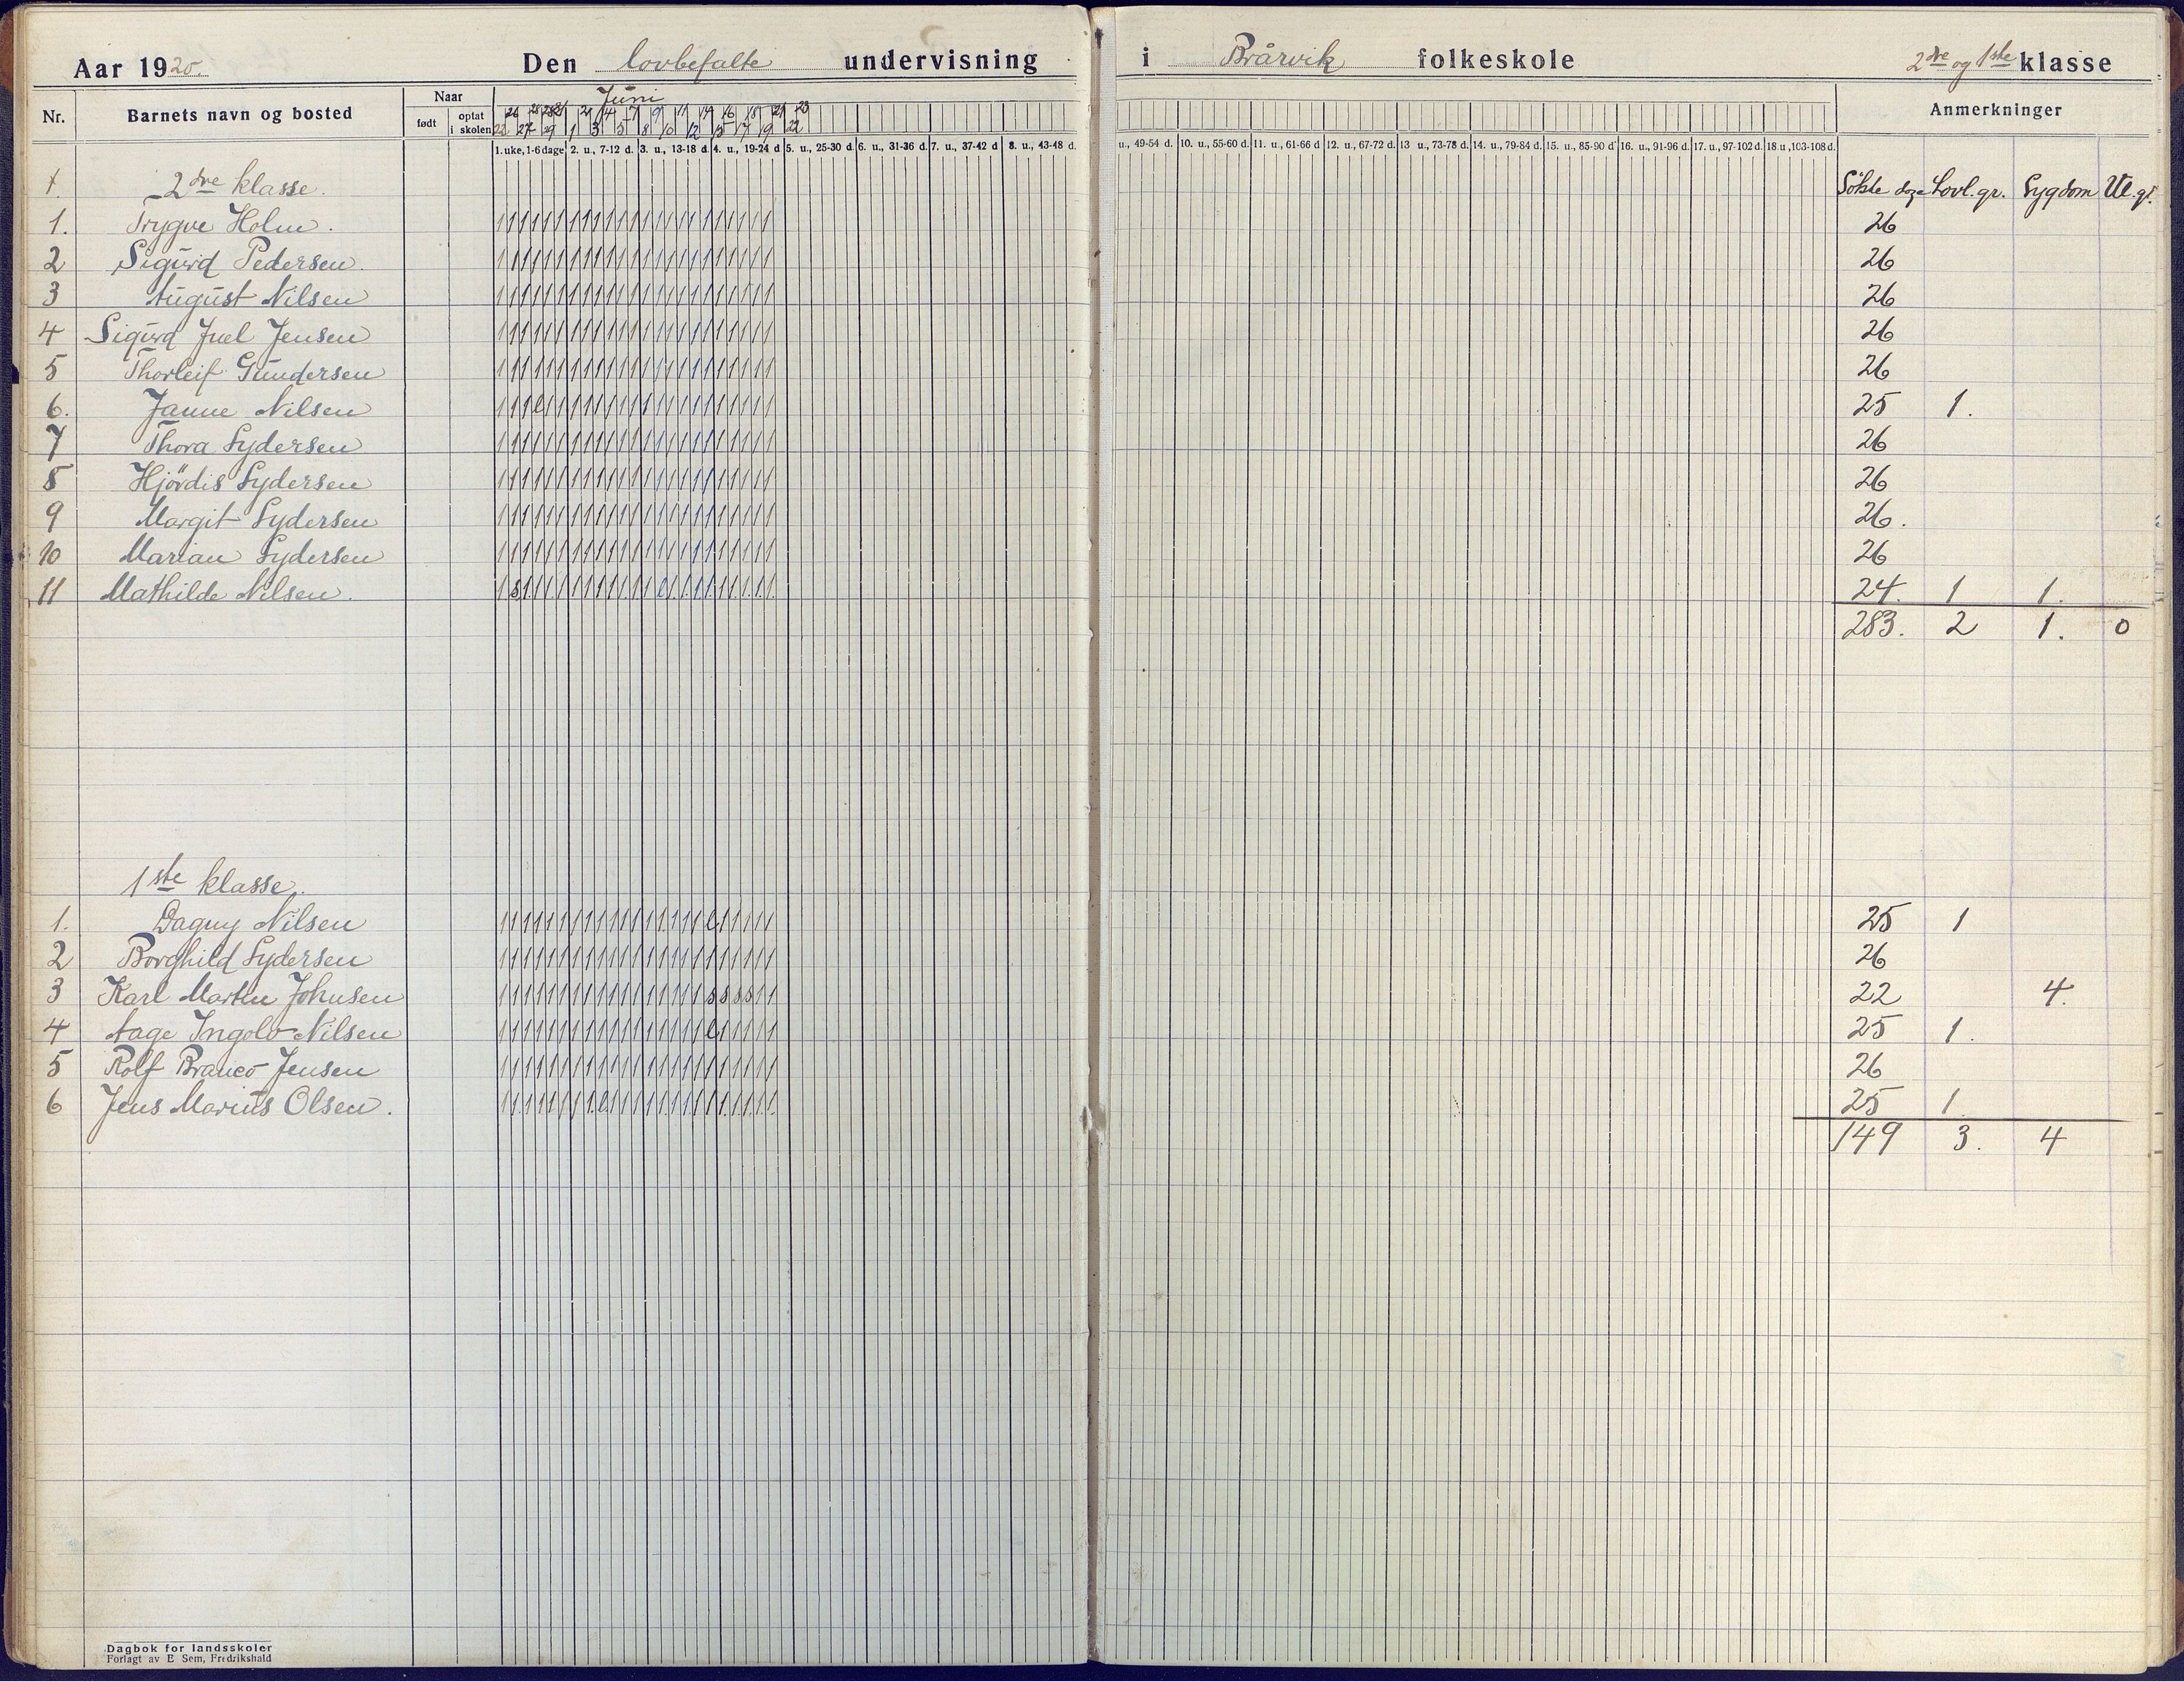 Aar 1920. Den lovbefalte undervisning i Brårvik folkeskole 2dre og 1ste klasse
Nr. Barnets navn og bosted Naar født optat i skolen Juni Anmerkninger
1. uke, 1-6 dage 2. u., 7-12 d. 3. u., 13-18 d. 4. u., 19-24 d 5. u., 25-30 d. 6. u., 31-36 d. 7. u., 37-42 d 8. u., 43-48 d. u., 49-54 d. 10. u., 55-60 d. 11. u., 61-66 d 12. u., 67-72 d. 13 u., 73-78 d. 14. u., 79-84 d. 15. u., 85-90 d 16. u., 91-96 d. 17. u., 97-102 d. 18.u.,103-108 d.
2dre klasse. Søkte dage Lovl. gr. Sygdom Ul. gr.
1. Trygve Holm. 26
2 Sigurd Pedersen. 26
3 August Nilsen 26
4 Sigurd Juel Jensen 26
5 Thorleif Gundersen 26
6. Janne Nilsen 25 1.
7 Thora Lydersen 26
8 Hjördis Lydersen 26
9 Margit Lydersen 26.
10 Marian Lydersen 26
11 Mathilde Nilsen. 24. 1 1.
283. 2 1. 0
1ste klasse.
1. Dagny Nilsen 25 1
2 Borghild Lydersen 26
3 Karl Martin Johnsen 22 4.
4 Aage Ingolv Nilsen 25 1.
5 Rolf Jensen 26
6 Jens Marius Olsen. 25 1.
149 3. 4
Dagbok for landsskoler
Forlagt av E Sem, Fredrikshald